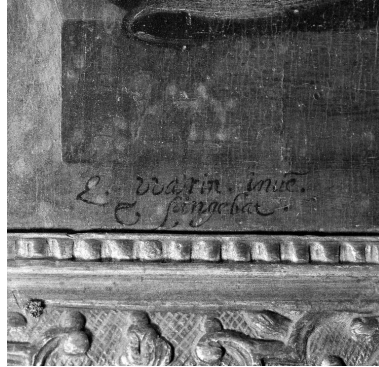 Q. varin. inuē.
& fingebat.